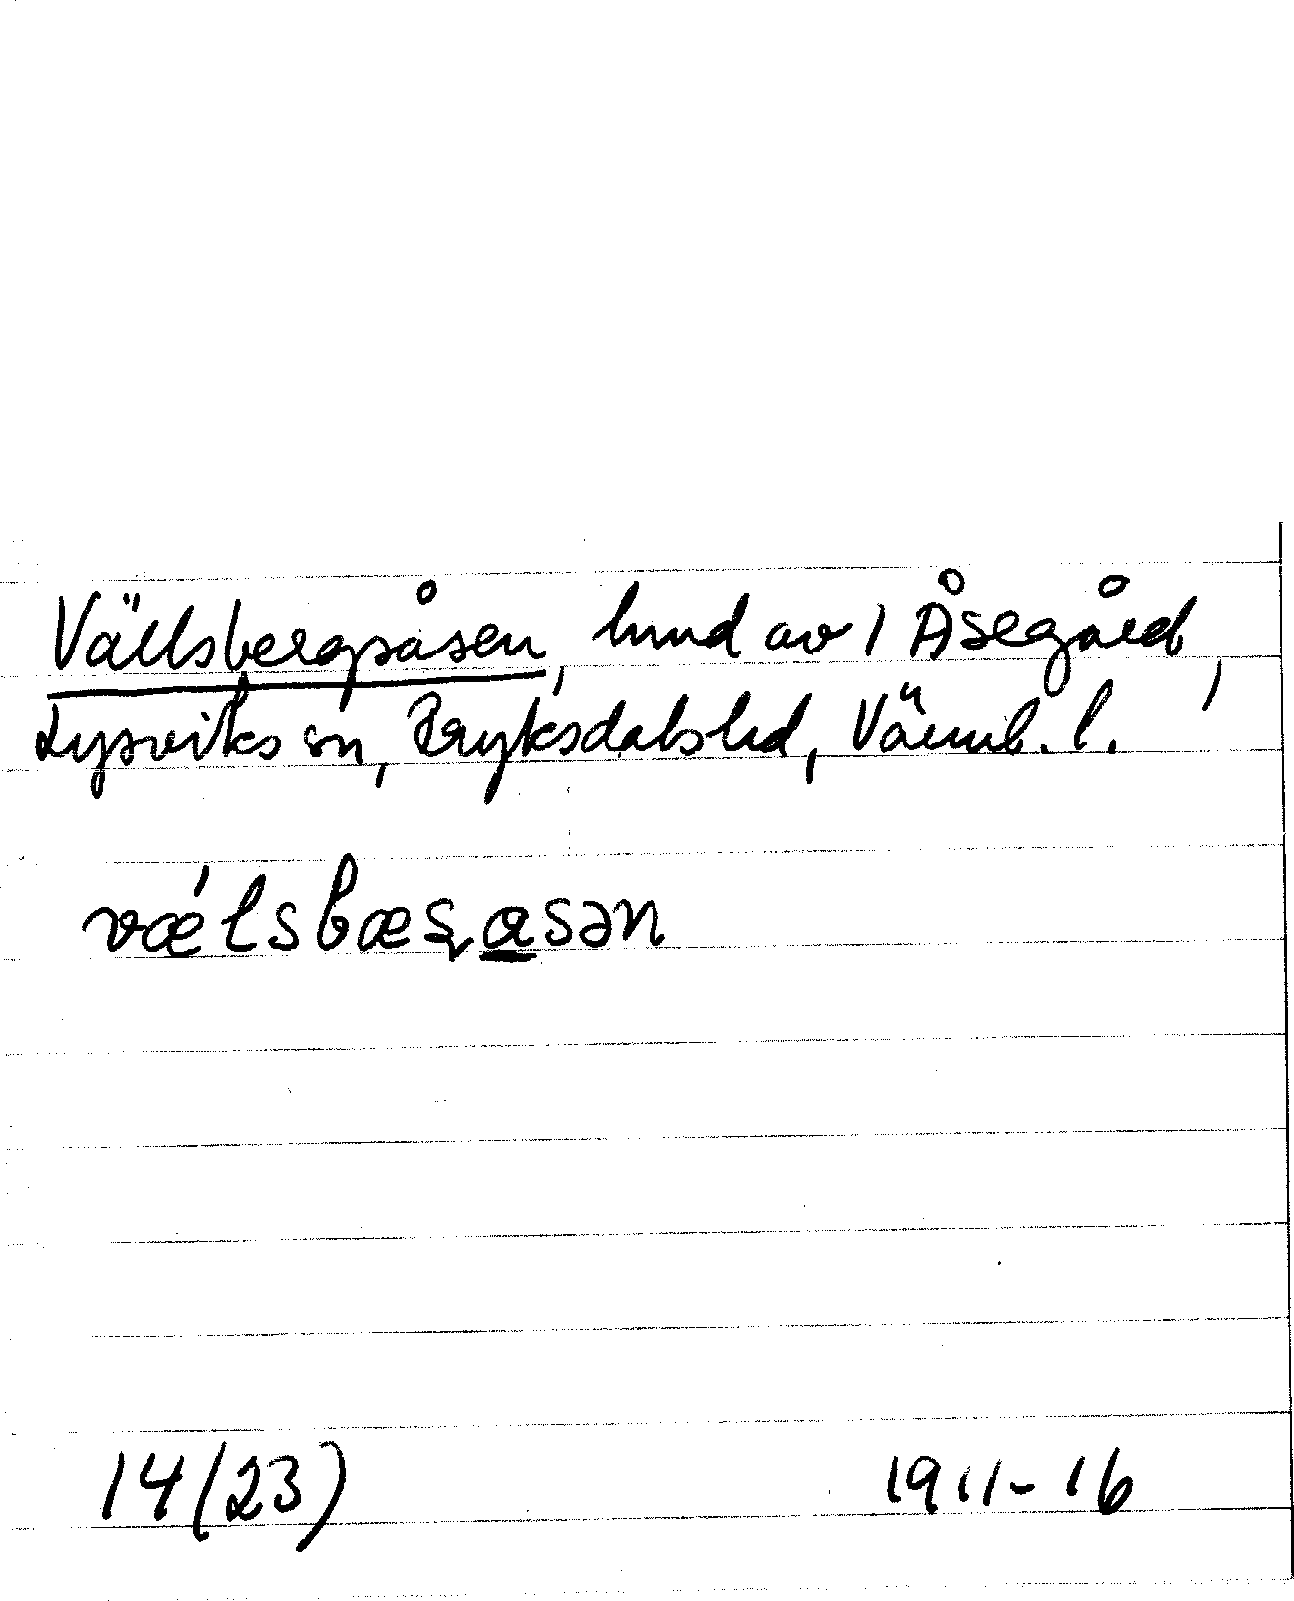 Vällsbergsåsen, hmd av 1 Åsegård,
Lysviks sn, Fryksdals hd, Värml. l.
vǽlsbæʂasən
14(23) 1911-16